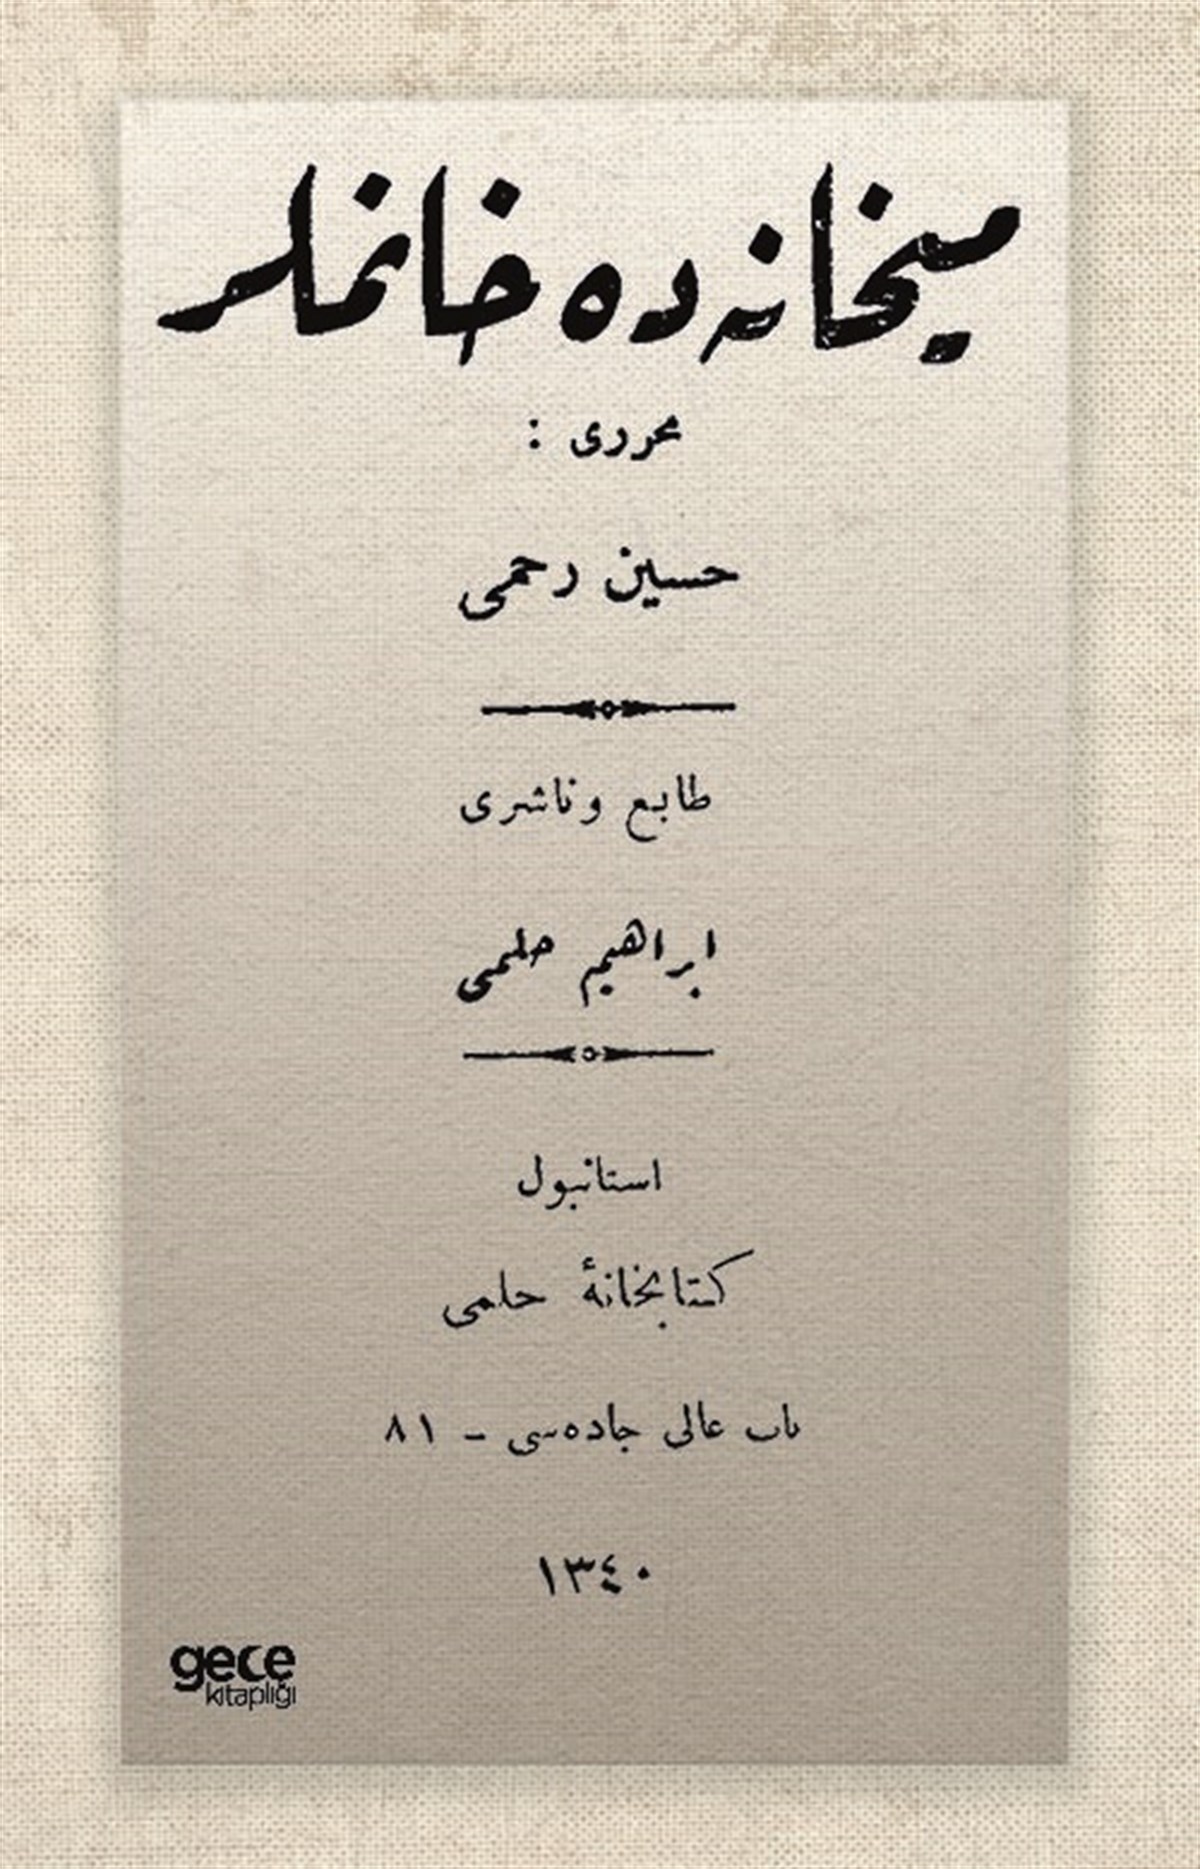 میخانه‌ده خانملر
محرری :
حسین رحمی
طابع وناشری
ابراهیم حلمی
استانبول
كتابخانهٔ حلمی
باب عالی جاده‌سی – ٨١
١٣٤٠
gece
kitaplığı